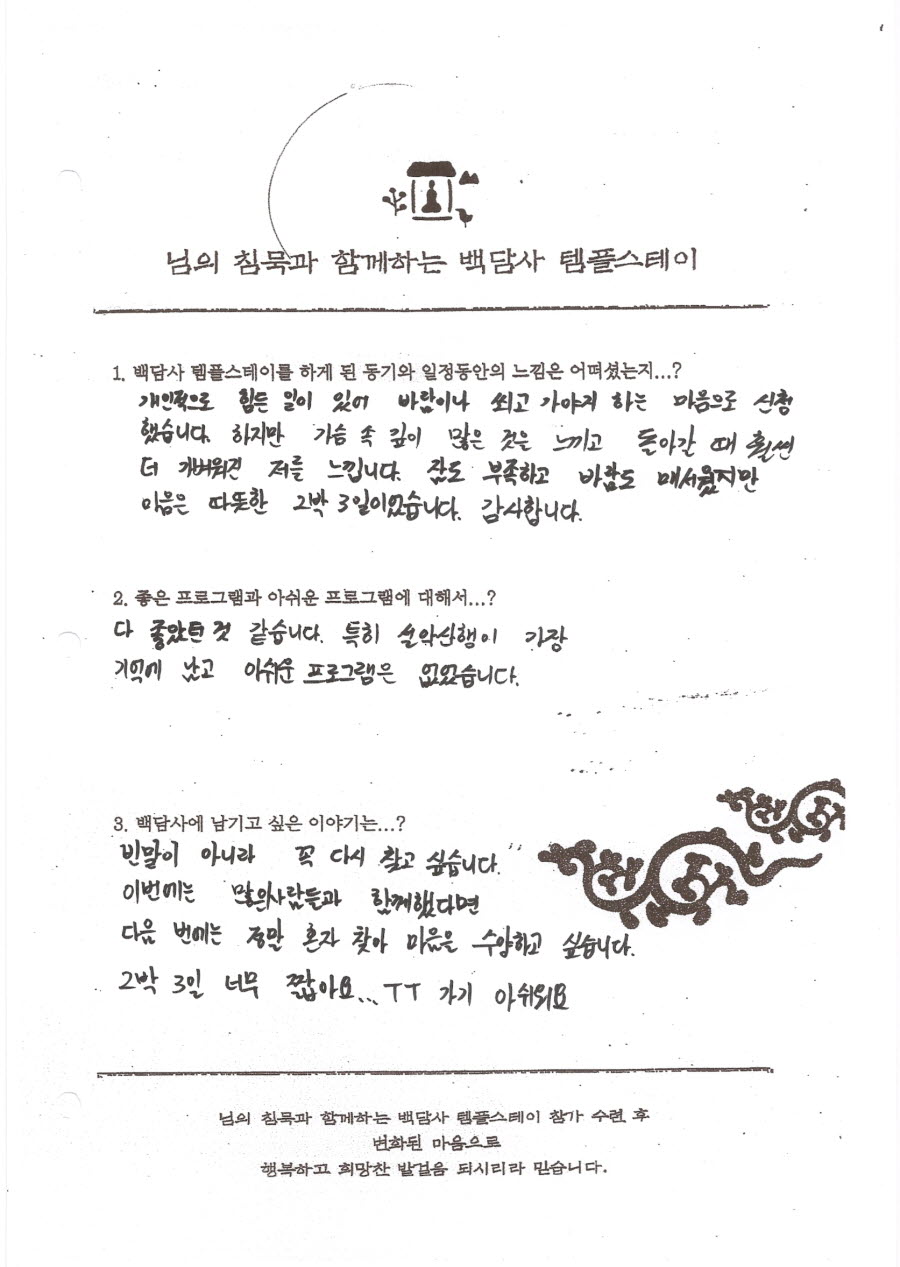 님의 침묵과 함께하는 백담사 템플스테이
1. 백담사 템플스테이를 하게 된 동기와 일정동안의 느낌은 어떠셨는지...?
개인적으로 힘든 일이 있어 바람이나 쐬고 가야지 하는 마음으로 신청
했습니다. 하지만 가슴 속 깊이 많은 것을 느끼고 돌아갈 때 훨씬
더 가벼워진 저를 느낍니다. 잠도 부족하고 바람도 매서웠지만
마음은 따뜻한 2박 3일이었습니다. 감사합니다.
2. 좋은 프로그램과 아쉬운 프로그램에 대해서...?
다 좋았던 것 같습니다. 특히 설악산행이 가장
기억에 남고 아쉬운 프로그램은 없었습니다.
3. 백담사에 남기고 싶은 이야기는...?
빈말이 아니라 꼭 다시 찾고 싶습니다.
이번에는 많은사람들과 함께했다면
다음 번에는 정말 혼자 찾아 마음을 수양하고 싶습니다.
2박 3일 너무 짧아요... TT 가기 아쉬워요
님의 침묵과 함께하는 백담사 템플스테이 참가 수련 후
변화된 마음으로
행복하고 희망찬 발걸음 되시리라 믿습니다.